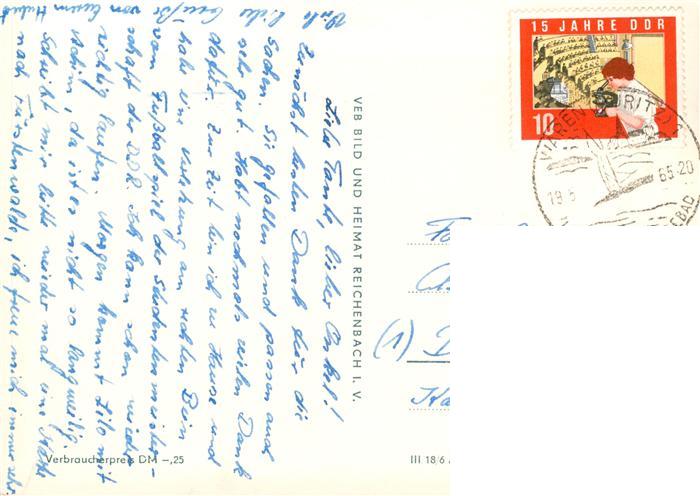 Liebe Tante, lieber Onkel!
Zunächst besten Dank für die
Sachen. Sie gefallen und passen auch
sehr gut. Habt nochmals vielen Dank
dafür. Zur Zeit bin ich zu Hause und
habe eine Verletzung am rechten Bein
vom Fußballspiel der Studentenmeister-
schaft der DDR. Ich kann schon wieder
richtig laufen. Morgen kommt Lilo mit
Achim, da ist es nicht so langweilig.
Schreibt mir bitte wieder mal eine Karte
nach Fürstenwalde, ich freue mich immer sehr
Viele liebe Grüße
von Eurem Hubert
VEB BILD UND HEIMAT REICHENBACH I. V.
Verbraucherpreis DM –,25
III 18/6
15 JAHRE DDR
10
WAREN (MÜRITZ)
18.5 65-20
(1)